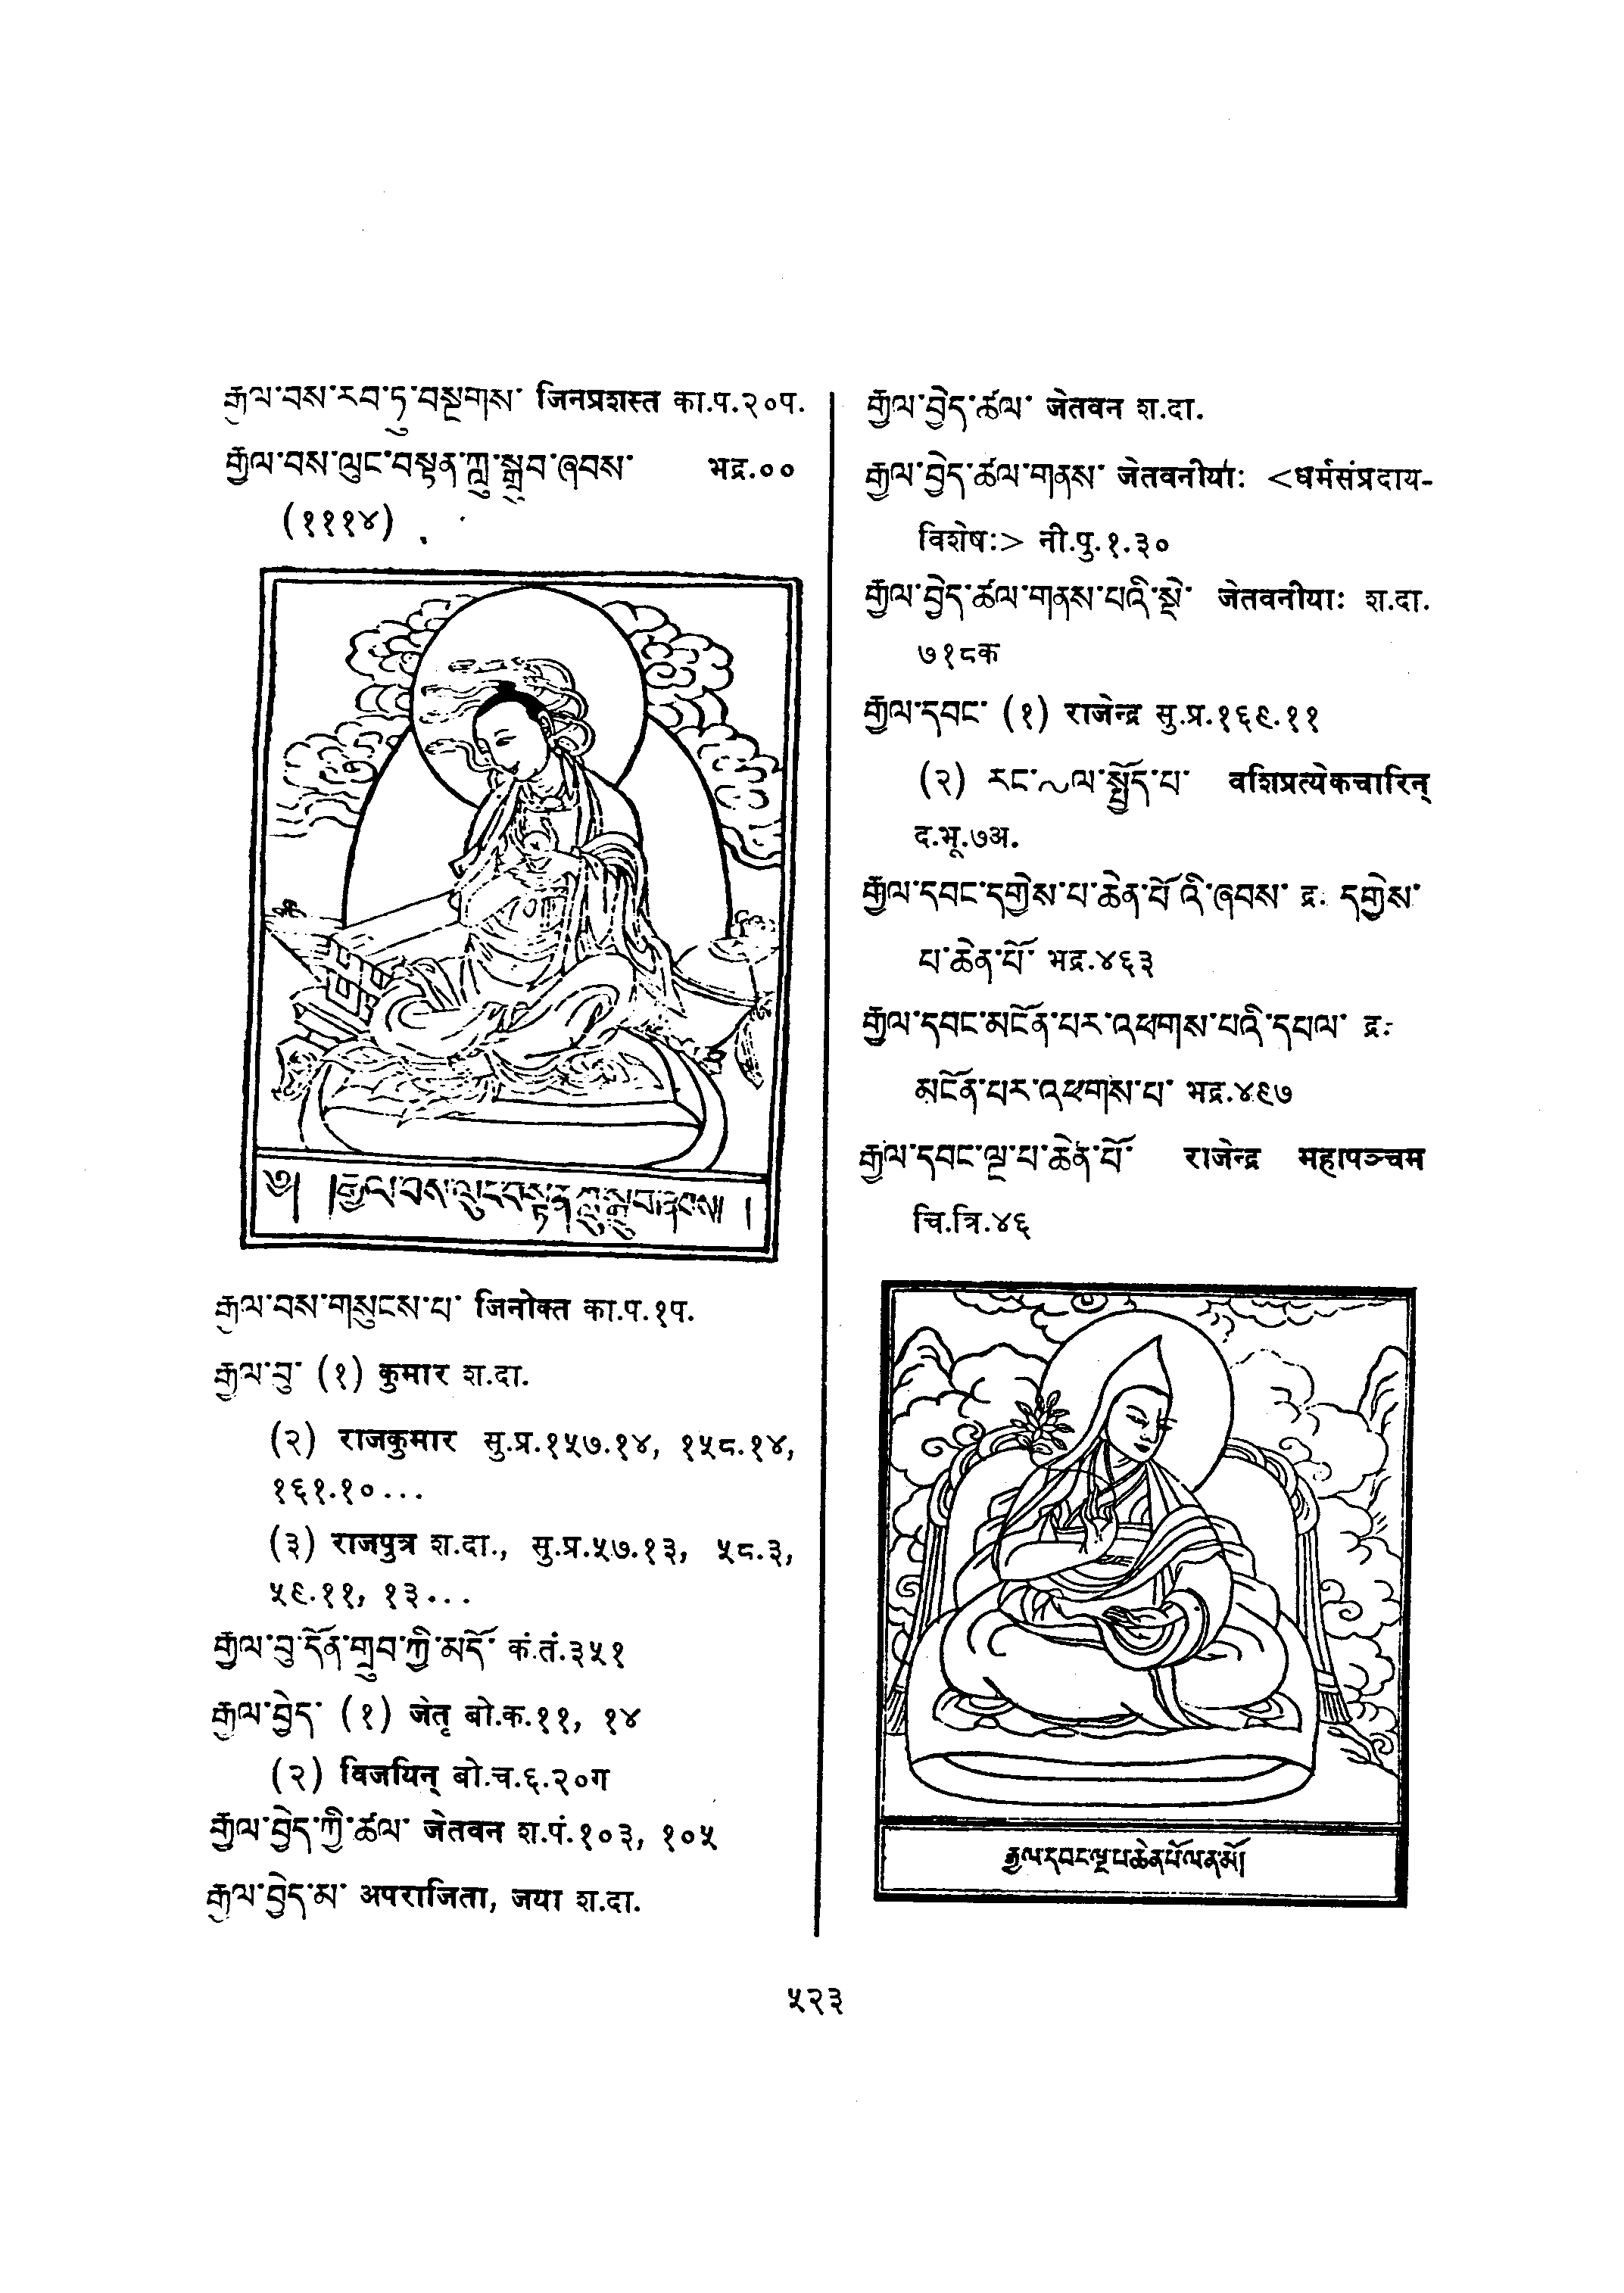 རྒྱལ་བས་རབ་ཏུ་བསྔགས་ जिनप्रशस्त का.प.२०प.
རྒྱལ་བས་ལུང་བསྟན་ཀླུ་སྒྲུབ་ཞབས་ भद्र.००
(१११४)
༄། །རྒྱལ་བས་ལུང་བསྟན་ཀླུ་སྒྲུབ་ཞབས། །
རྒྱལ་བས་གསུངས་པ་ जिनोक्त का.प.१प.
རྒྱལ་བུ་ (१) कुमार श.दा.
(२) राजकुमार सु.प्र.१५७.१४, १५८.१४,
१६१.१०...
(३) राजपुत्र श.दा., सु.प्र.५७.१३, ५८.३,
५९.११, १३...
རྒྱལ་བུ་དོན་གྲུབ་ཀྱི་མདོ་ कं.तं.३५१
རྒྱལ་བྱེད་ (१) जेतृ बो.क.११, १४
(२) विजयिन् बो.च.६.२०ग
རྒྱལ་བྱེད་ཀྱི་ཚལ་ जेतवन श.पं.१०३, १०५
རྒྱལ་བྱེད་མ་ अपराजिता, जया श.दा.
རྒྱལ་བྱེད་ཚལ་ जेतवन श.दा.
རྒྱལ་བྱེད་ཚལ་གནས་ जेतवनीयाः <धर्मसंप्रदाय-
विशेषः> नी.पु.१.३०
རྒྱལ་བྱེད་ཚལ་གནས་པའི་སྡེ་ जेतवनीयाः श.दा.
७१८क
རྒྱལ་དབང་ (१) राजेन्द्र सु.प्र.१६९.११
(२) རང་~ལ་སྤྱོད་པ་ वशिप्रत्येकचारिन्
द.भू.७अ.
རྒྱལ་དབང་དགྱེས་པ་ཆེན་པོ་འི་ཞབས་ द्र. དགྱེས་
པ་ཆེན་པོ་ भद्र.४६३
རྒྱལ་དབང་མངོན་པར་འཕགས་པའི་དཔལ་ द्र.
མངོན་པར་འཕགས་པ་ भद्र.४९७
རྒྱལ་དབང་ལྔ་པ་ཆེན་པོ་ राजेन्द्र महापञ्चम
चि.त्रि.४६
རྒྱལ་དབང་ལྔ་པ་ཆེན་པོ་ལ་ན་མོ།
५२३